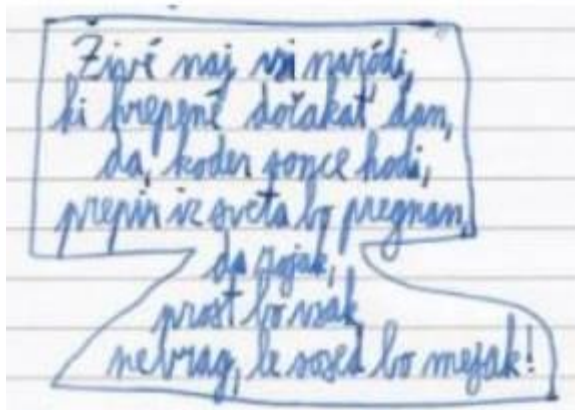 Živé naj vsi naródi,
ki hrepené dočakat' dan,
da, koder sonce hodi,
prepir iz sveta bo pregnan,
da rojak,
prost bo vsak,
ne vrag, le sosed bo mejak!